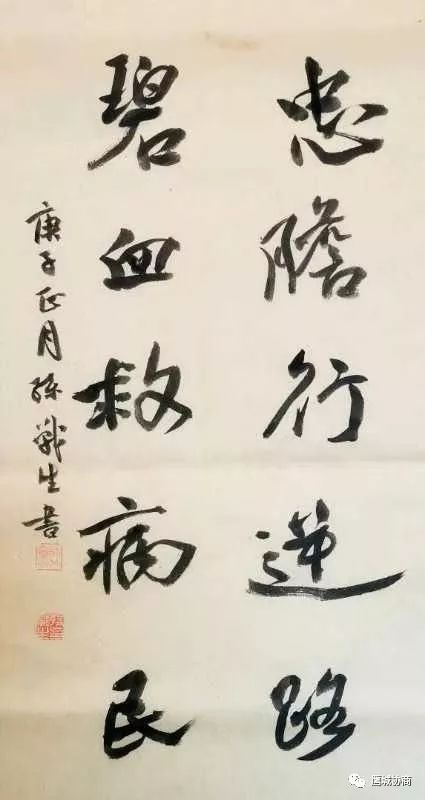 忠膽行逆路
碧血救病民
庚子正月孫戰生書
鹰城协商